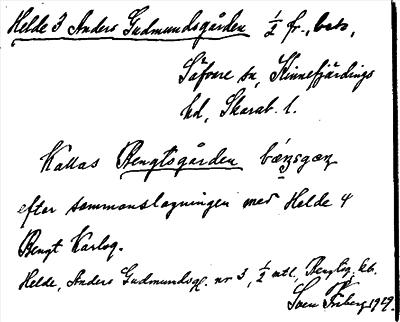 Helde 3 Anders Gudmundsgården ½ fr., beb.,
Säfvare sn, Kinnefjärdings
hd, Skarab. l.
Kallas Bengtsgården
efter sammanslagningen med Helde 4
Bengt Karlsg.
Helde, Anders Gudmundsg. nr 3, ½ mtl,
Sven Friberg 1929.